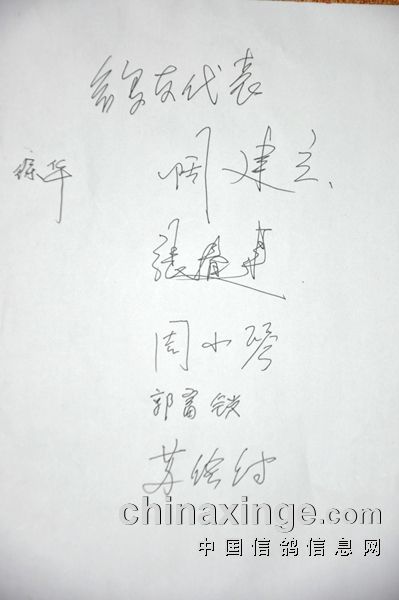 鸽友代表
徐华
周建立
张
周小琴
郭富锁
苏
chinaxinge.com
中国信鸽信息网